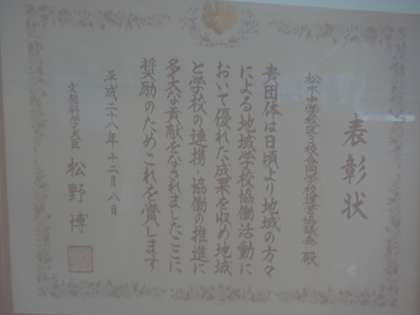 表彰状
松下中学校区学校合同学校運営協議会 殿
貴団体は日頃より地域の方々
による地域学校協働活動に
おいて優れた成果を収め地域
と学校の連携・協働の推進に
多大な貢献をなされましたここに
奨励のためこれを賞します
平成二十八年十二月八日
文部科学大臣 松野 博